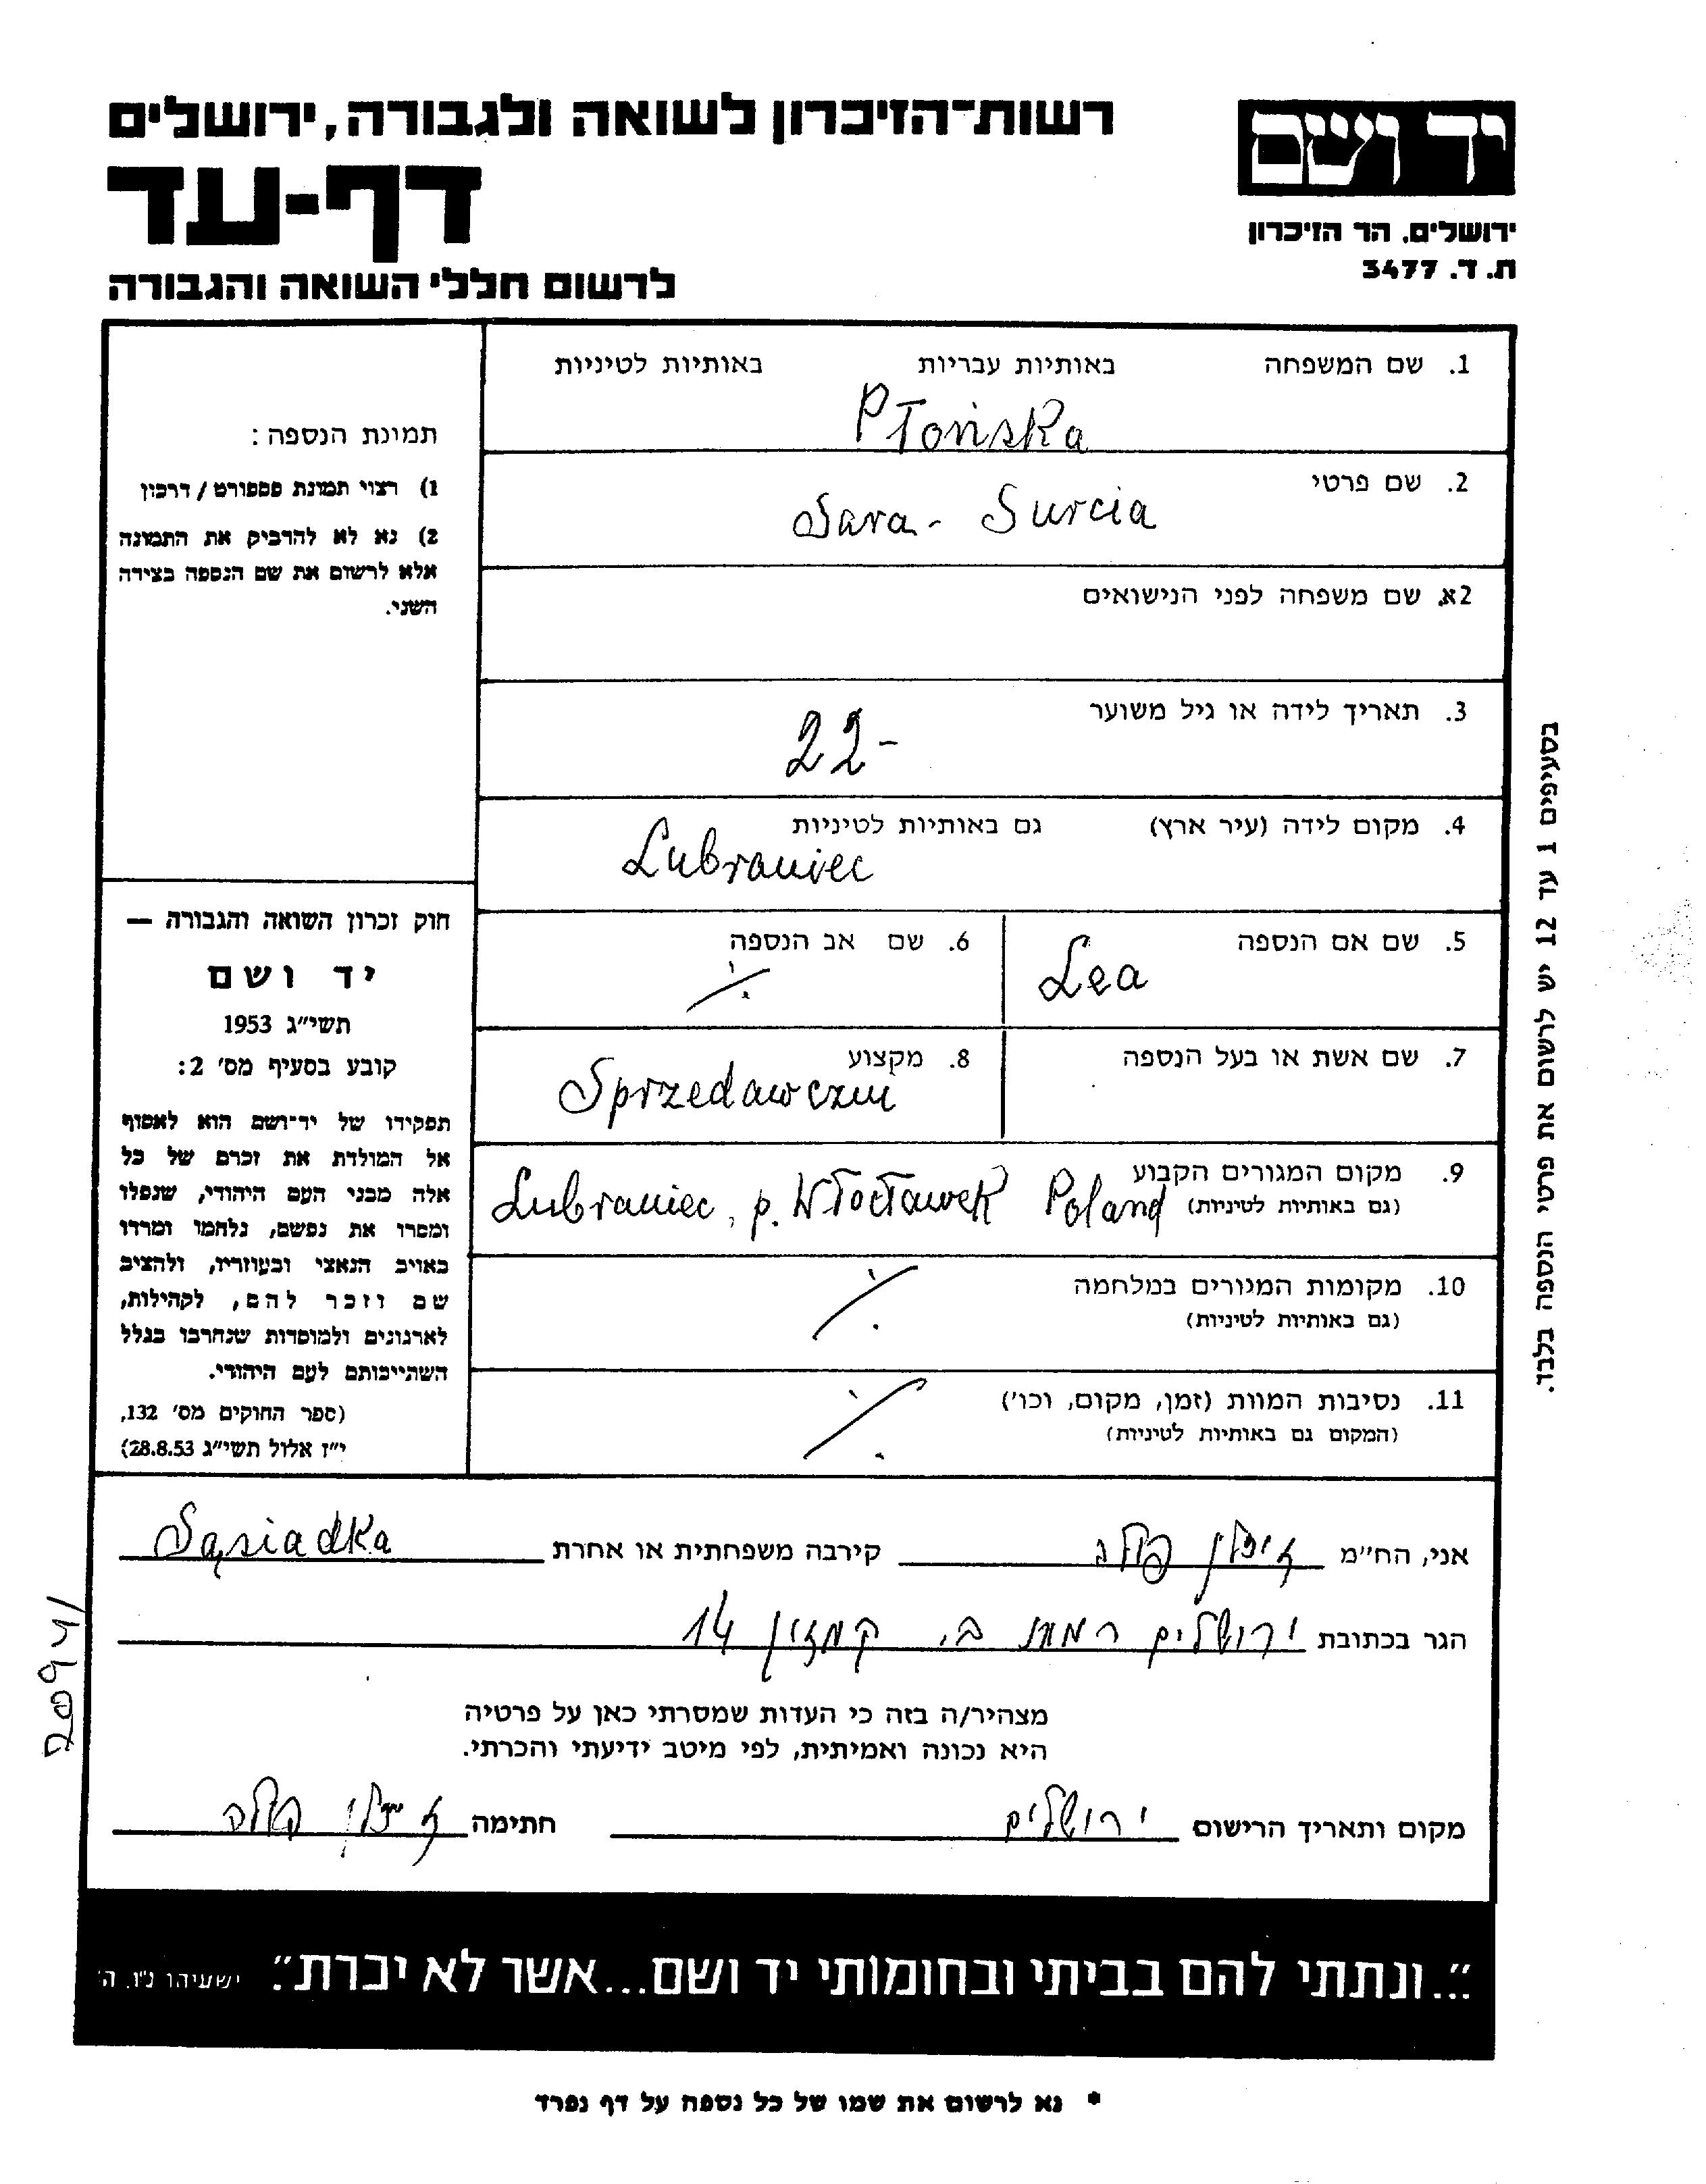 רשות־הזיכרון לשואה ולגבורה, ירושלים
דף-עד
לרשום חללי השואה והגבורה
יד ושם
ירושלים, הר הזיכרון
ת. ד. 3477
1. שם המשפחה באותיות עבריות באותיות לטיניות
Płońska
2. שם פרטי
Sara - Surcia
2א. שם משפחה לפני הנישואים
3. תאריך לידה או גיל משוער
22-
4. מקום לידה (עיר ארץ) גם באותיות לטיניות
Lubraniec
5. שם אם הנספה
Lea
6. שם אב הנספה
7. שם אשת או בעל הנספה
8. מקצוע
9. מקום המגורים הקבוע
(גם באותיות לטיניות)
Lubraniec, p. Włocławek Poland
10. מקומות המגורים במלחמה
(גם באותיות לטיניות)
11. נסיבות המוות (זמן, מקום, וכו')
(המקום גם באותיות לטיניות)
תמונת הנספה:
1) רצוי תמונת פספורט / דרכון
2) נא לא להדביק את התמונה
אלא לרשום את שם הנספה בצידה
השני.
חוק זכרון השואה והגבורה —
יד ושם
תשי"ג 1953
קובע בסעיף מס' 2:
תפקידו של יד־ושם הוא לאסוף
אל המולדת את זכרם של כל
אלה מבני העם היהודי, שנפלו
ומסרו את נפשם, נלחמו ומרדו
באויב הנאצי ובעוזריו, ולהציב
שם וזכר להם, לקהילות,
לארגונים ולמוסדות שנחרבו בגלל
השתייכותם לעם היהודי.
(ספר החוקים מס' 132,
י"ז אלול תשי"ג 28.8.53)
בסעיפים 1 עד 12 יש לרשום את פרטי הנספה בלבד.
אני, הח"מ קירבה משפחתית או אחרת Sąsiadka
הגר בכתובת ירושלים רמות ב. 14
מצהיר/ה בזה כי העדות שמסרתי כאן על פרטיה
היא נכונה ואמיתית, לפי מיטב ידיעתי והכרתי.
מקום ותאריך הרישום ירושלים חתימה
"...ונתתי להם בביתי ובחומותי יד ושם...אשר לא יכרת". ישעיהו נ"ו, ה'
* נא לרשום את שמו של כל נספה על דף נפרד